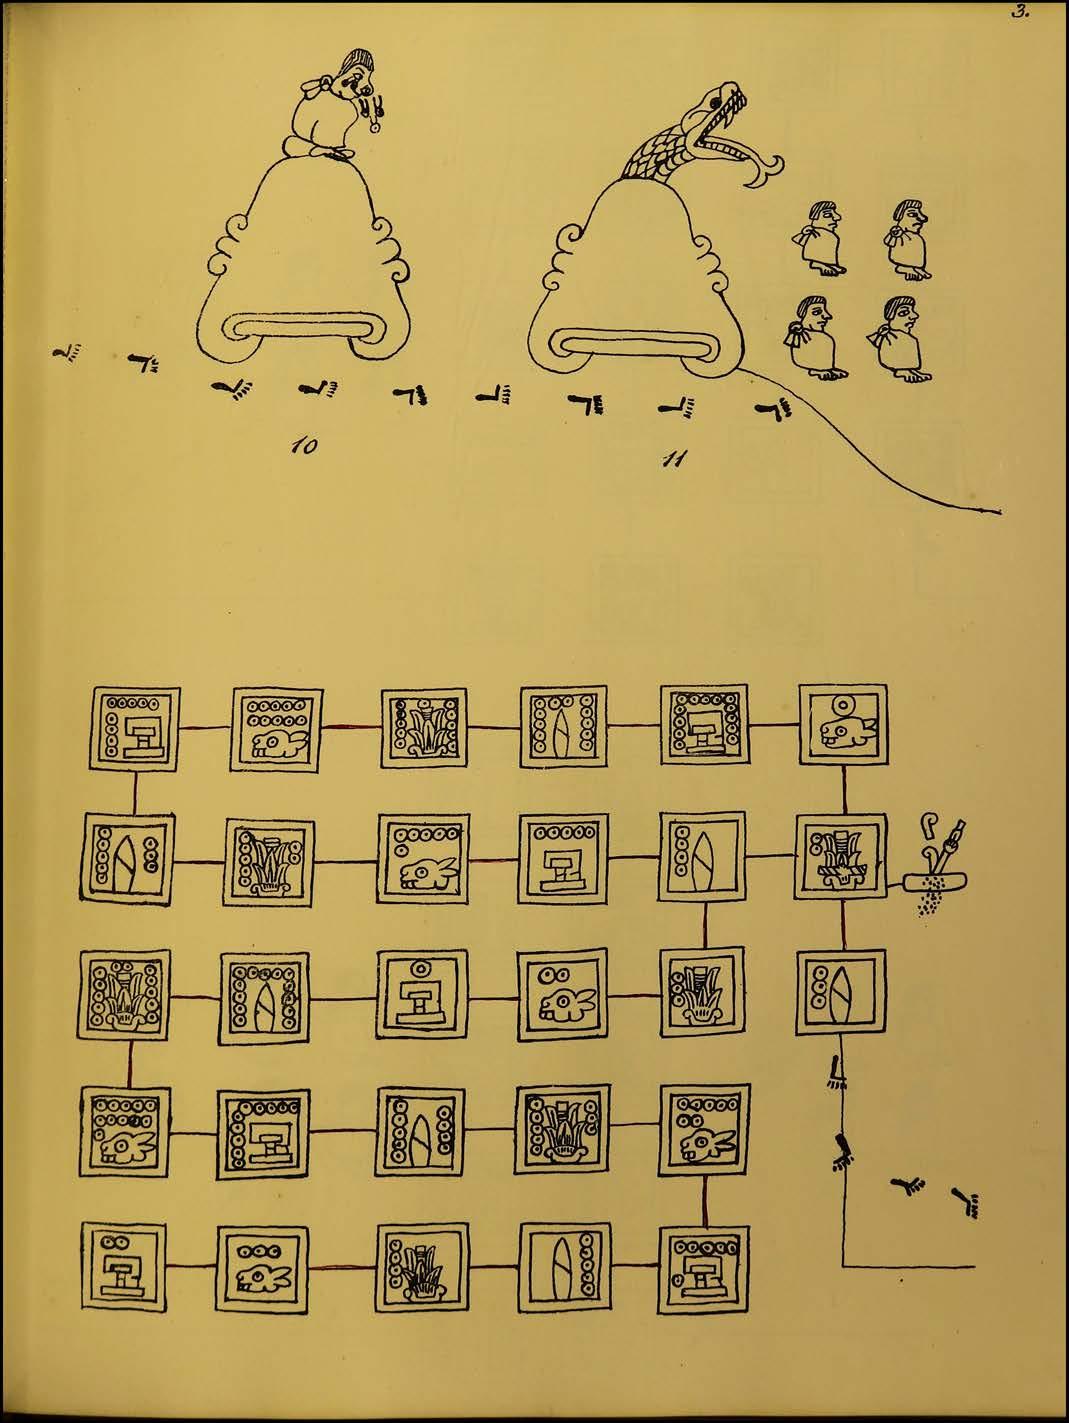 3.
10
11